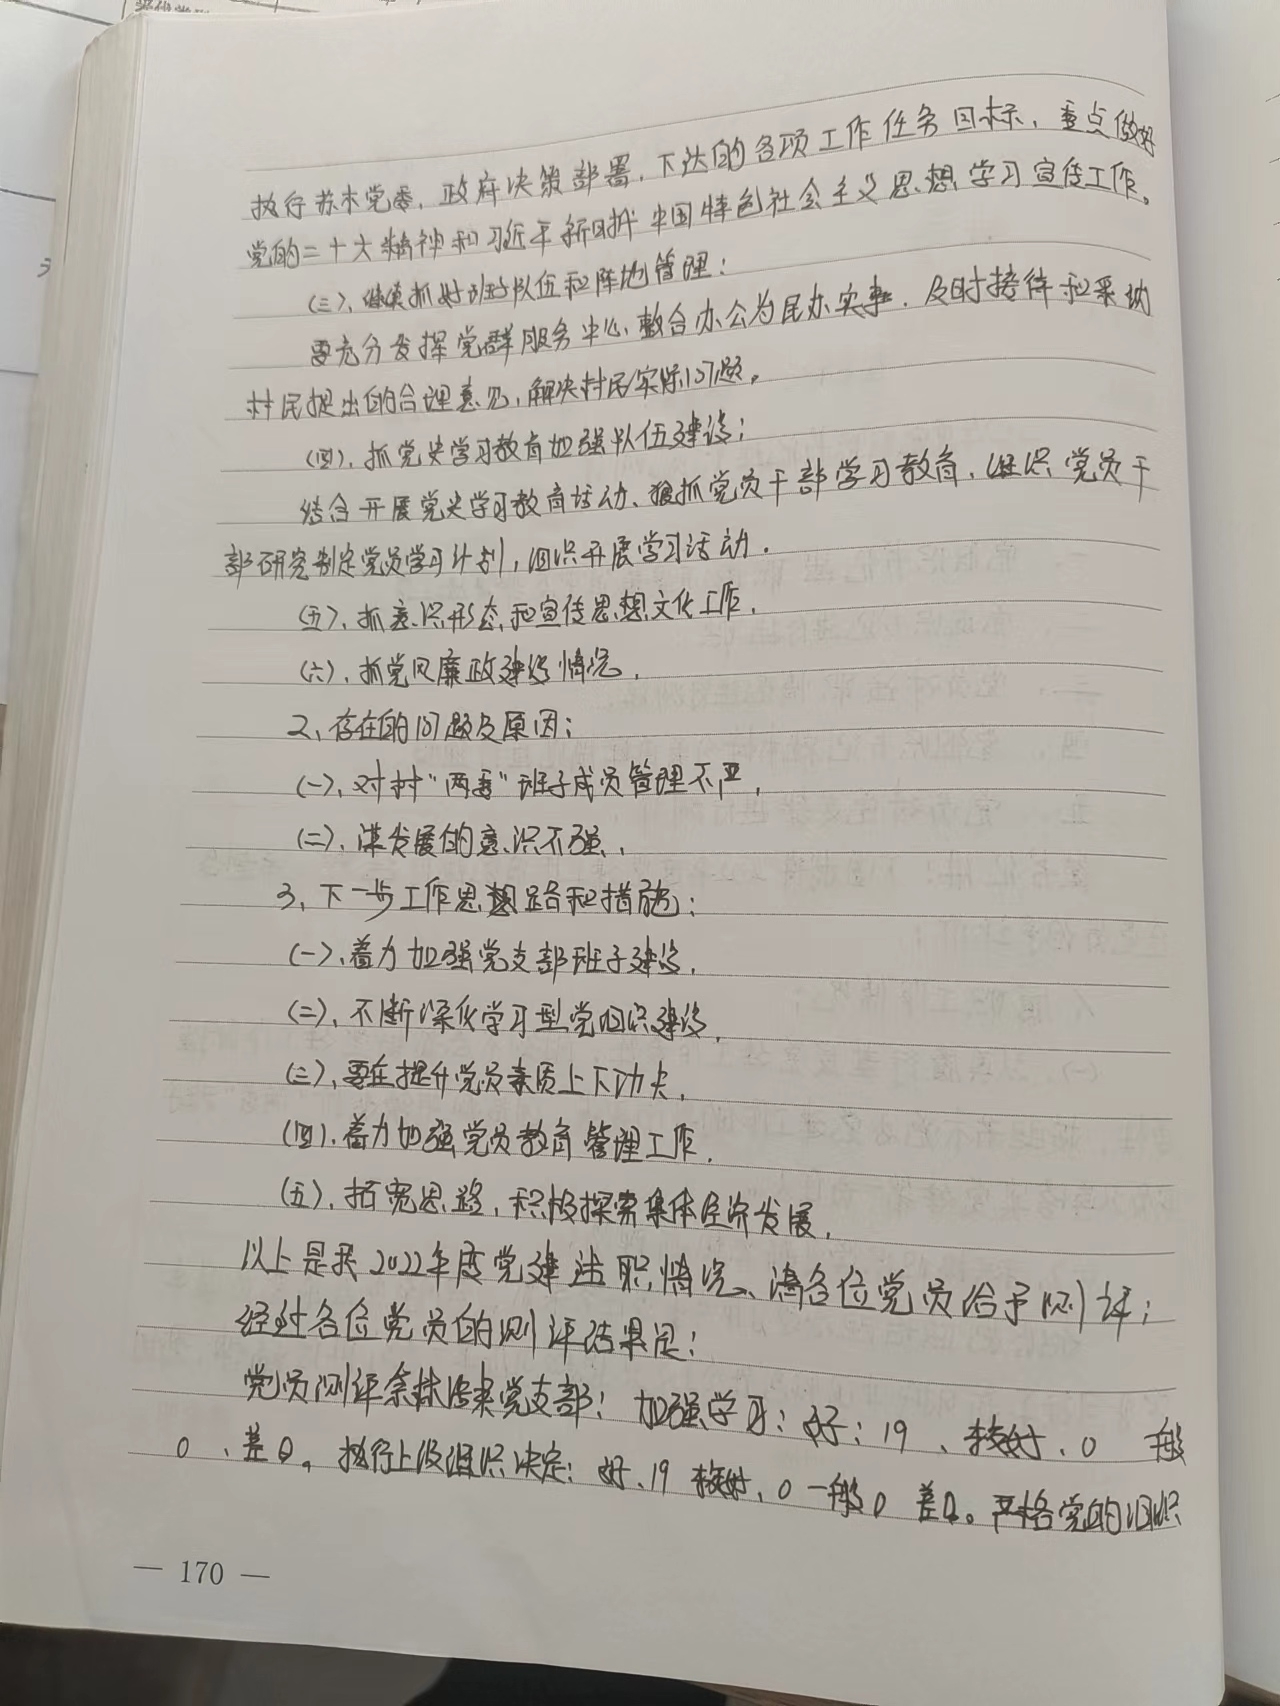 执行苏木党委、政府决策部署,下达的各项工作任务目标、重点做好
党的二十大精神和习近平新时代中国特色社会主义思想学习宣传工作。
(三)、继续抓好班子队伍和阵地管理:
要充分发挥党群服务中心、整合办公为民办实事、及时接待和采纳
村民提出的合理意见,解决村民实际问题。
(四)、抓党史学习教育加强队伍建设:
结合开展党史学习教育活动、狠抓党员干部学习教育、组织党员干
部研究制定党员学习计划,组织开展学习活动.
(五)、抓意识形态和宣传思想文化工作.
(六)、抓党风廉政建设情况.
2、存在的问题及原因:
(一)、对村“两委”班子成员管理不严.
(二)、谋发展的意识不强.
3、下一步工作思想路和措施:
(一)、着力加强党支部班子建设.
(二)、不断深化学习型党组织建设.
(三)、要在提升党员素质上下功夫.
(四)、着力加强党员教育管理工作.
(五)、拓宽思路,积极探索集体经济发展.
以上是我2022年度党建述职情况、请各位党员给予测评;
经过各位党员的测评结果是:
党员测评 党支部: 加强学习: 好: 19 、较好、0 一般
0 、差0。执行上级组织决定: 好、19 较好、0 一般0 差0。严格党的组织
— 170 —